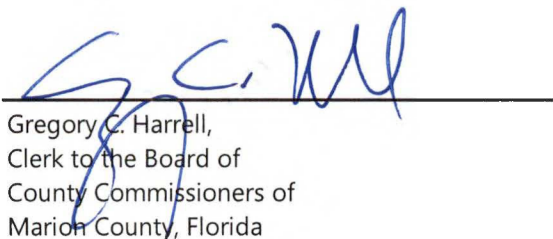 Gregory C. Harrell,
Clerk to the Board of
County Commissioners of
Marion County, Florida